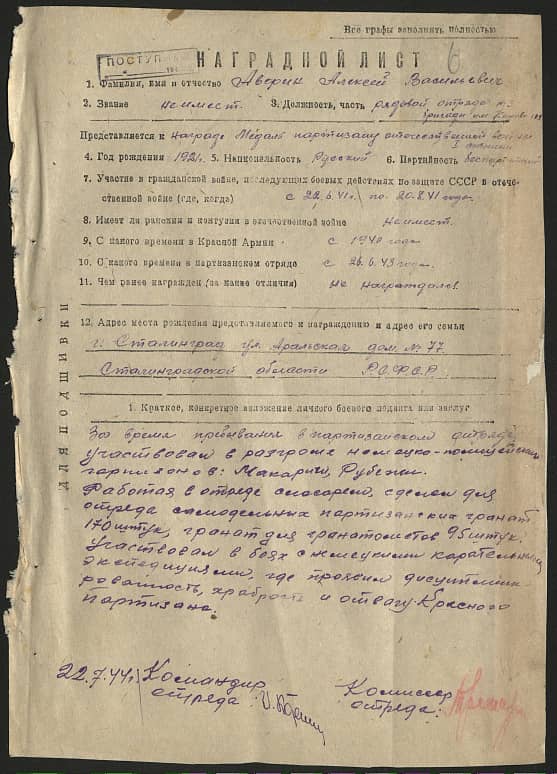 Все графы заполнять полностью
ПОСТУП
НАГРАДНОЙ ЛИСТ 6
1. Фамилия, имя и отчество Аверин Алексей Васильевич
2. Звание не имеет. 3. Должность, часть рядовой отряда
бригады им
Представляется к награде Медаль партизану отечественной войны
I степени
4. Год рождения 1921г. 5. Национальность Русский 6. Партийность беспартийный
7. Участие в гражданской войне, последующих боевых действиях по защите СССР в отече-
ственной войне (где, когда) с 22.6.41г. по 20.8.41 года
8. Имеет ли ранения и контузии в отечественной войне Не имеет.
9. С какого времени в Красной Армии с 1940 года
10. С какого времени в партизанском отряде с 26.6.43 года.
11. Чем ранее награжден (за какие отличия) Не награждался
ДЛЯ ПОДШИВКИ
12. Адрес места рождения представляемого к награждению и адрес его семьи
г. Сталинград ул. Аральская дом. № 77.
Сталинградской области Р.С.Ф.С.Р.
1. Краткое, конкретное изложение личного боевого подвига или заслуг
За время пребывания в партизанском отряде
участвовал в разгроме немецко-полицейских
гарнизонов: Макаричи, Рубежи.
Работая в отряде слесарем, сделал для
отряда самодельных партизанских гранат
170 штук, гранат для гранатометов 95 штук.
Участвовал в боях с немецкими карательными
экспедициями, где проявил дисциплини-
рованность, храбрость и отвагу Красного
партизана.
22.7.44г. Командир
отряда:
Комиссар
отряда: